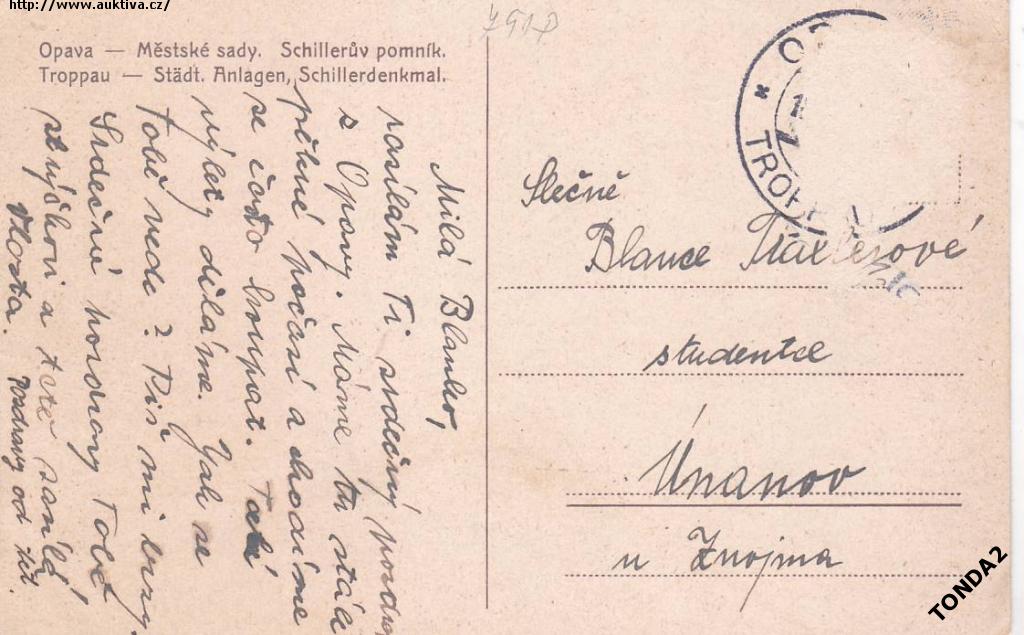 http://www.auktiva.cz/
791P
Opava — Městské sady. Schillerův pomník.
Troppau — Städt. Anlagen, Schillerdenkmal.
Milá Blanko,
zasílám Ti srdečný pozdrav
s Opavy. Máme tu stále
pěkné počasí a chodíme
se často koupat. Také
výlety děláme. Jak se
Tobě vede? Piš mi brzy.
Srdečné pozdravy Tobě
strýčkovi a tetě zasílá
Vlasta. Pozdravy od tet.
* TROPPAU
Slečně
Blance Traxlerové
studentce
Únanov
u Znojma
TONDA2